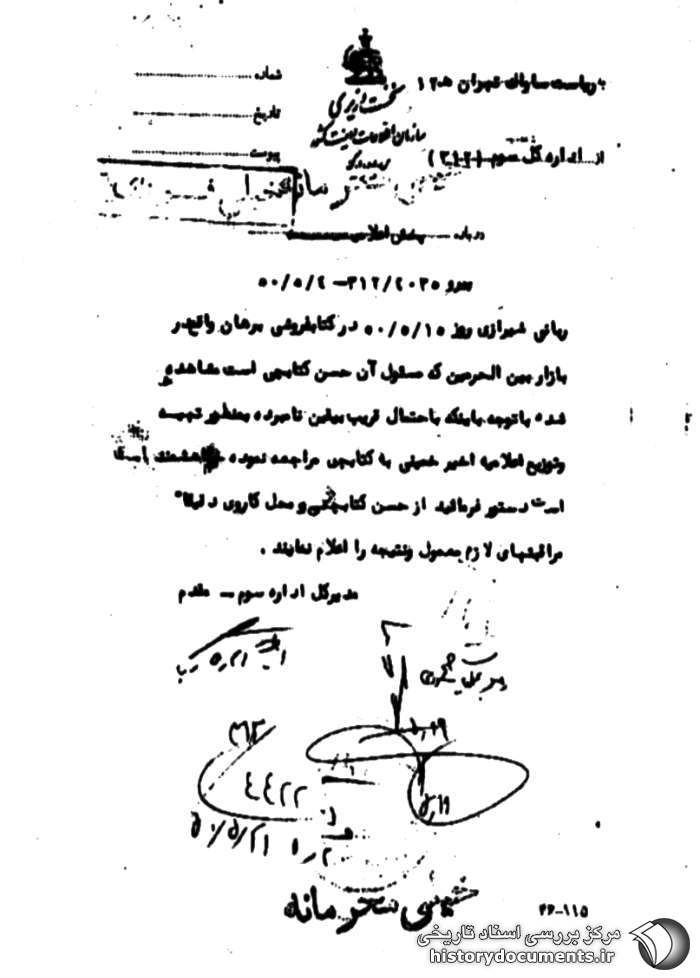 به ریاست ساواک تهران ۱۲۰۵
شماره
نخست وزیری
تاریخ
سازمان اطلاعات و امنیت کشور
از اداره کل سوم (۳۱۲)
پیوست
درباره
پیرو ۳۱۲/۲۰۳۵ – ۵۰/۵/۴
ربانی شیرازی روز ۵۰/۵/۱۵ در کتابفروشی برهان واقع در
بازار بین الحرمین که مسئول آن حسن کتابچی است مشاهده
شده باتوجه باینکه باحتمال قریب بیقین نامبرده بمنظور تهیه
وتوزیع اعلامیه اخیر خمینی به کتابچی مراجعه نموده خواهشمند است
است دستور فرمائید از حسن کتابچی و محل کاروی دقیقا"
مراقبتهای لازم معمول ونتیجه را اعلام نمایند .
مدیرکل اداره سوم – مقدم
۳۱۲
۴۴۲۲
۵۰/۵/۲۱
خیلی محرمانه
۴۶-۱۱۵
مرکز بررسی اسناد تاریخی
historydocuments.ir